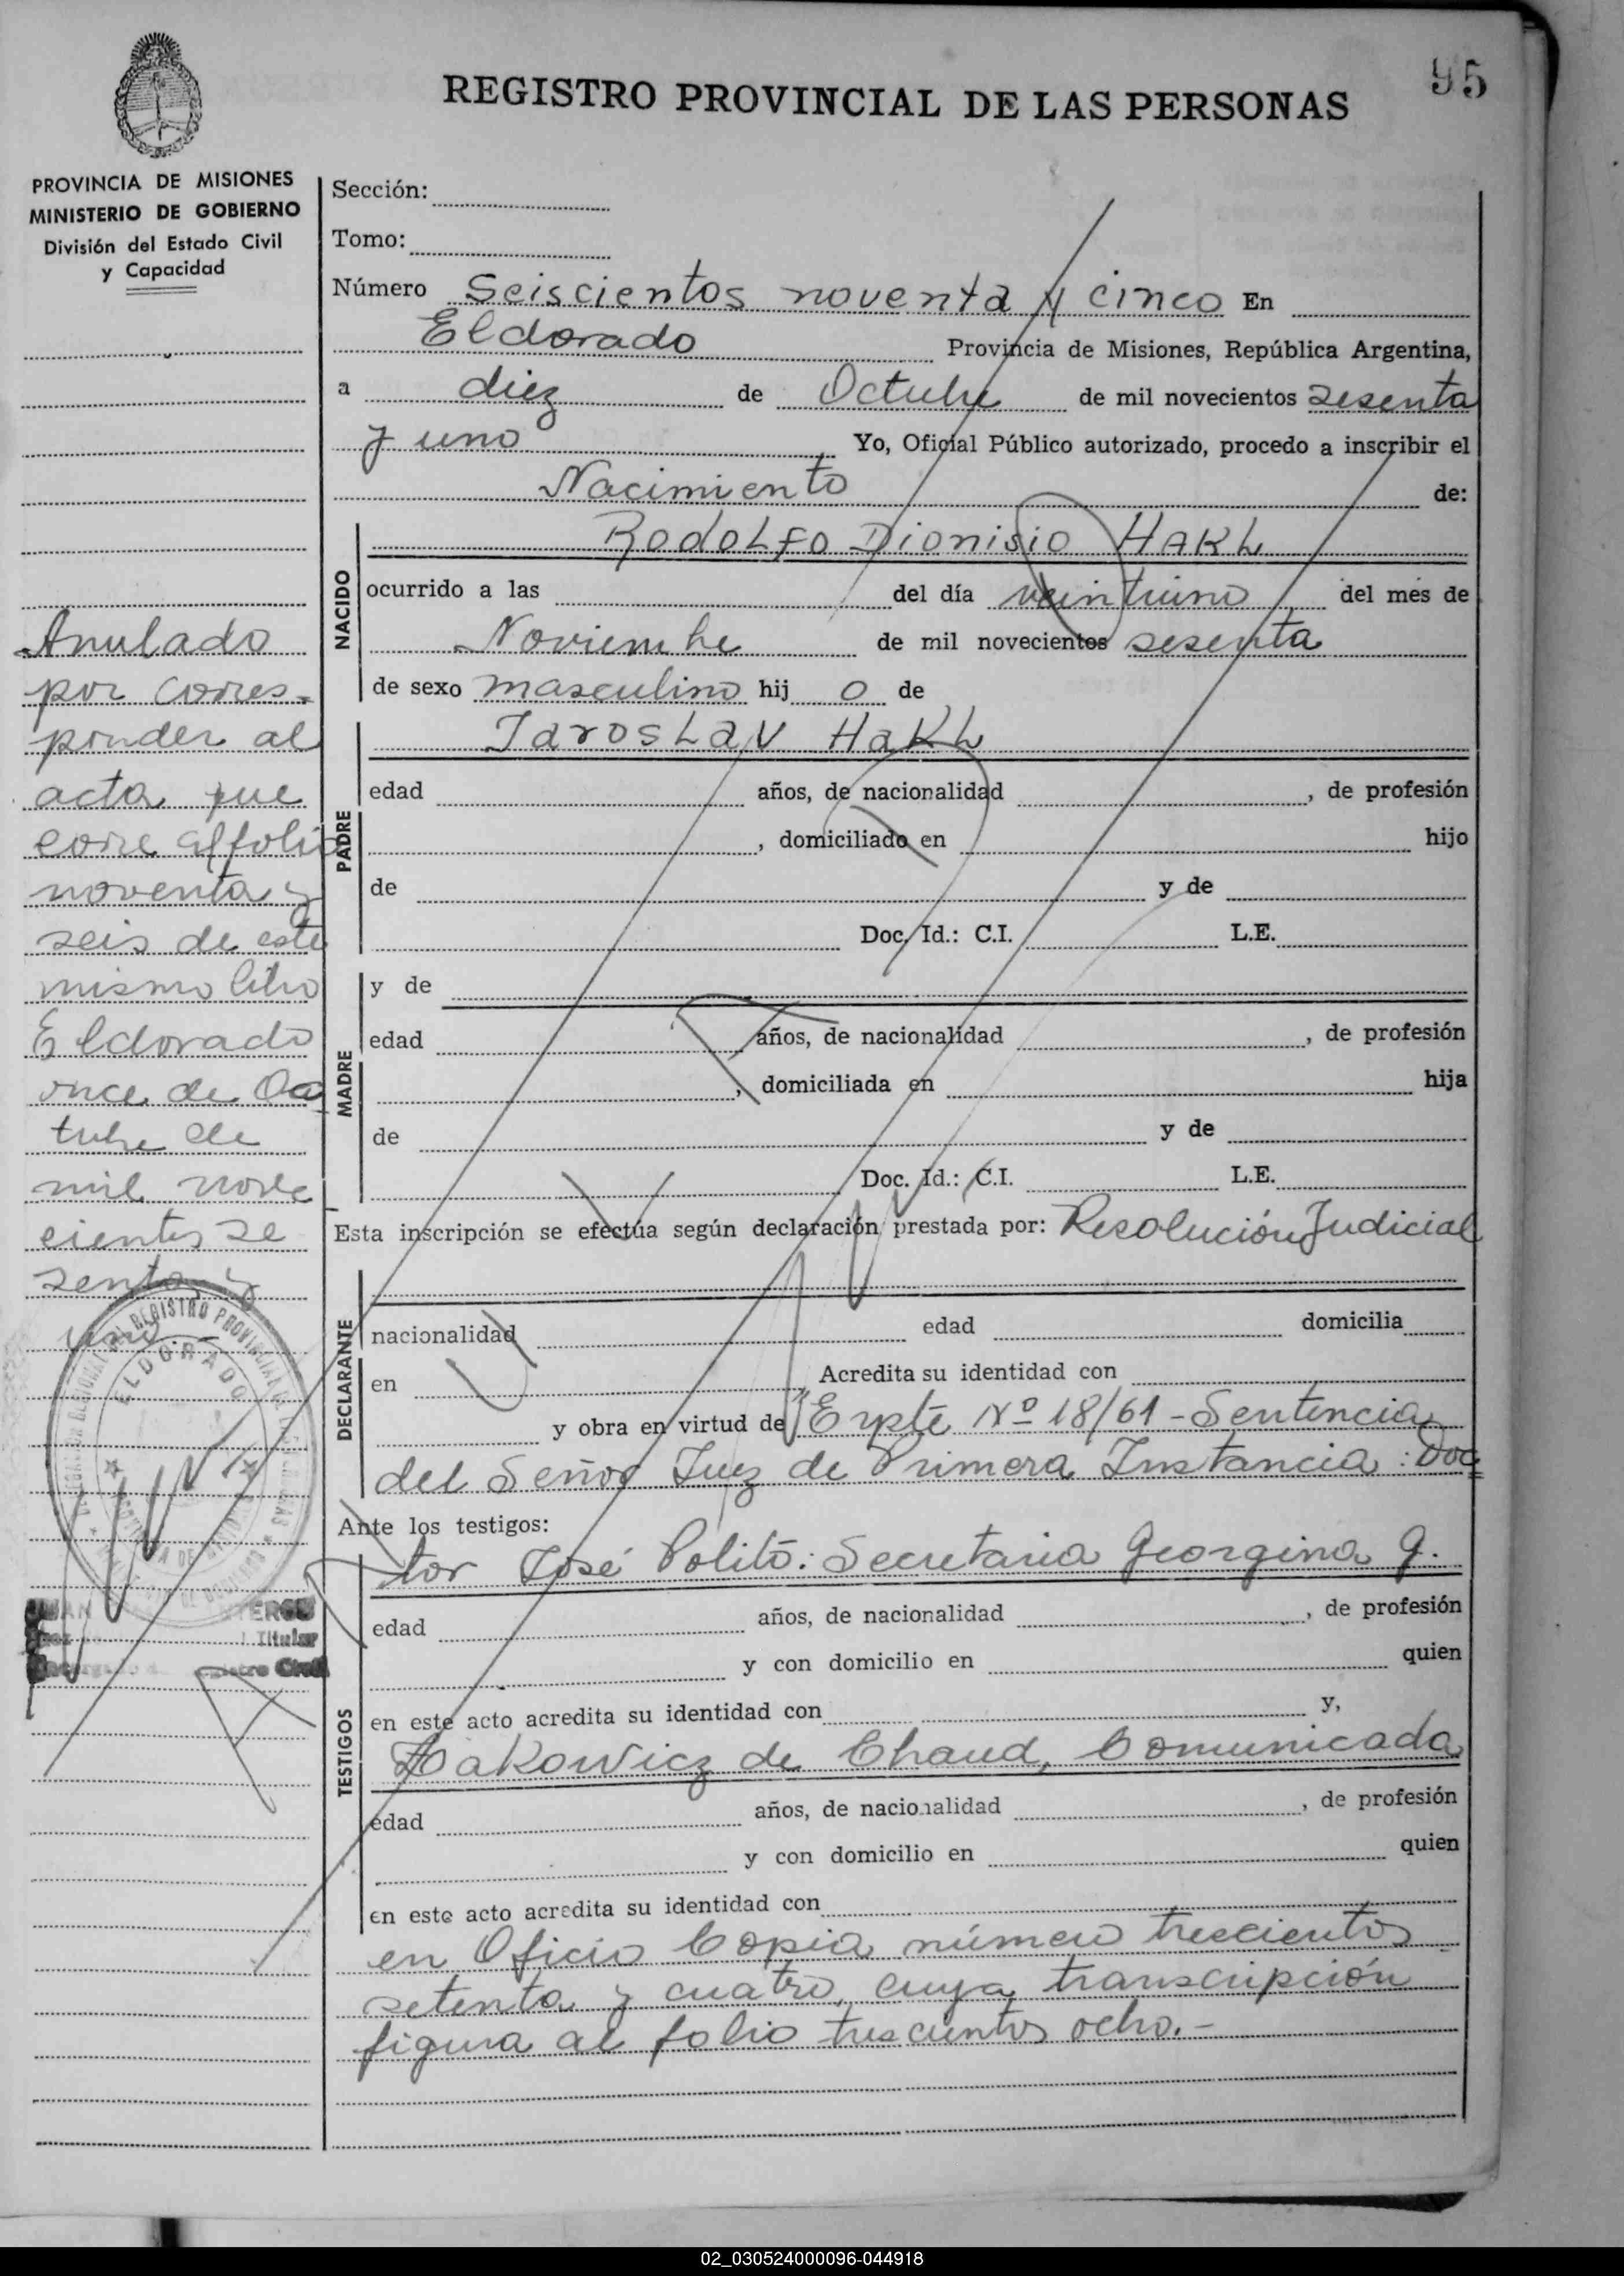 95
REGISTRO PROVINCIAL DE LAS PERSONAS
PROVINCIA DE MISIONES
MINISTERIO DE GOBIERNO
División del Estado Civil
y Capacidad
Sección:
Tomo:
Número Seiscientos noventa y cinco En
Eldorado Provincia de Misiones, República Argentina,
a diez de Octubre de mil novecientos sesenta
y uno Yo, Oficial Público autorizado, procedo a inscribir el
Nacimiento de:
NACIDO
Rodolfo Dionisio HAKL
ocurrido a las del día veintiuno del mes de
Noviembre de mil novecientos sesenta
de sexo masculino hij o de
PADRE
Jaroslav Hakl
edad años, de nacionalidad , de profesión
, domiciliado en hijo
de y de
Doc. Id.: C.I. L.E.
MADRE
y de
edad años, de nacionalidad , de profesión
, domiciliada en hija
de y de
Doc. Id.: C.I. L.E.
Esta inscripción se efectúa según declaración prestada por: Resolución Judicial
DECLARANTE
nacionalidad edad domicilia
en Acredita su identidad con
y obra en virtud de "Expte Nº 18/61 - Sentencia
del Señor Juez de Primera Instancia: Doc
Ante los testigos:
TESTIGOS
tor José Politò: Secretaria Georgina G.
edad años, de nacionalidad , de profesión
y con domicilio en quien
en este acto acredita su identidad con y,
de Chaud, Comunicada
edad años, de nacionalidad , de profesión
y con domicilio en quien
en este acto acredita su identidad con
en Oficio Copia número trescientos
setenta y cuatro, cuya transcripción
figura al folio trescientos ocho.-
Anulado
por corres-
ponder al
acta que
corre al folio
noventa y
seis de este
mismo libro
Eldorado
once de Oc
tubre de
mil nove
cientos se
senta y
uno.
REGISTRO PROVINCIAL
ELDORADO
Titular
02_030524000096-044918